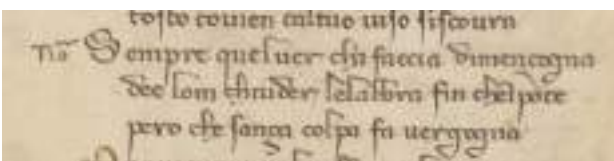 tosto conuien caltuo uiso siscoura
No Sempre quel uer cha faccia dimençogna
dee lom chiuder lelabbra fin chel pote
pero che sança colpa fa uergogna